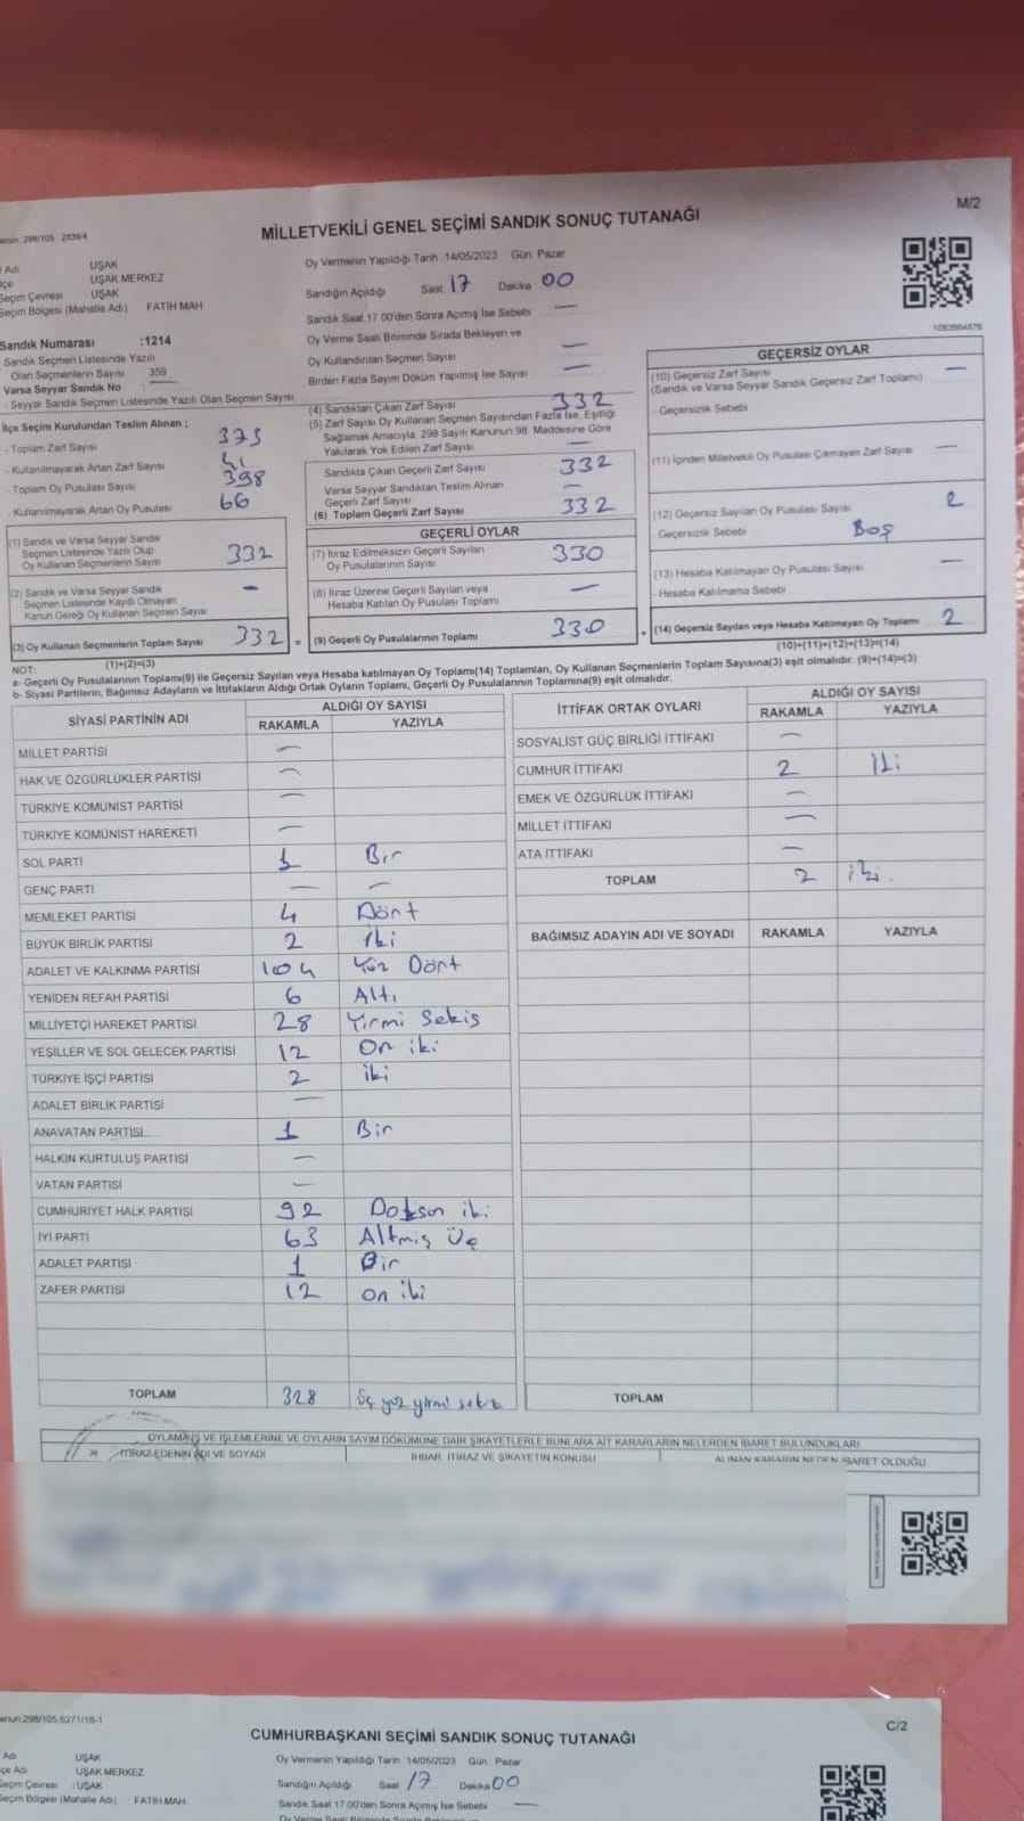 M/2
MİLLETVEKİLİ GENEL SEÇİMİ SANDIK SONUÇ TUTANAĞI
Adı UŞAK
UŞAK MERKEZ
Seçim Çevresi UŞAK
Seçim Bölgesi (Mahalle Adı) FATİH MAH
Sandık Numarası :1214
Sandık Seçmen Listesinde Yazılı
Olan Seçmenlerin Sayısı 359
Varsa Seyyar Sandık No
Seyyar Sandık Seçmen Listesinde Yazılı Olan Seçmen Sayısı
İlçe Seçim Kurulundan Teslim Alınan ;
- Toplam Zarf Sayısı 373
- Kullanılmayarak Artan Zarf Sayısı 41
- Toplam Oy Pusulası Sayısı 398
- Kullanılmayarak Artan Oy Pusulası 66
(1) Sandık ve Varsa Seyyar Sandık
Seçmen Listesinde Yazılı Olup
Oy Kullanan Seçmenlerin Sayısı 332
(2) Sandık ve Varsa Seyyar Sandık
Seçmen Listesinde Kaydı Olmayan
Kanun Gereği Oy Kullanan Seçmen Sayısı -
(3) Oy Kullanan Seçmenlerin Toplam Sayısı 332
(1)+(2)=(3)
Oy Vermenin Yapıldığı Tarih 14/05/2023 Gün: Pazar
Sandığın Açıldığı Saat 17 Dakika 00
Sandık Saat 17.00'den Sonra Açılmış İse Sebebi —
Oy Verme Saati Bitiminde Sırada Bekleyen ve
Oy Kullandırılan Seçmen Sayısı —
Birden Fazla Sayım Döküm Yapılmış İse Sayısı —
(4) Sandıktan Çıkan Zarf Sayısı 332
(5) Zarf Sayısı Oy Kullanan Seçmen Sayısından Fazla İse, Eşitliği
Sağlamak Amacıyla, 298 Sayılı Kanunun 98. Maddesine Göre
Yakılarak Yok Edilen Zarf Sayısı —
Sandıkta Çıkan Geçerli Zarf Sayısı 332
Varsa Seyyar Sandıktan Teslim Alınan
Geçerli Zarf Sayısı —
(6) Toplam Geçerli Zarf Sayısı 332
GEÇERLİ OYLAR
(7) İtiraz Edilmeksizin Geçerli Sayılan
Oy Pusulalarının Sayısı 330
(8) İtiraz Üzerine Geçerli Sayılan veya
Hesaba Katılan Oy Pusulası Toplamı —
= (9) Geçerli Oy Pusulalarının Toplamı 330
GEÇERSİZ OYLAR
(10) Geçersiz Zarf Sayısı —
(Sandık ve Varsa Seyyar Sandık Geçersiz Zarf Toplamı)
Geçersizlik Sebebi
(11) İçinden Milletvekili Oy Pusulası Çıkmayan Zarf Sayısı —
(12) Geçersiz Sayılan Oy Pusulası Sayısı 2
Geçersizlik Sebebi Boş
(13) Hesaba Katılmayan Oy Pusulası Sayısı —
- Hesaba Katılmama Sebebi
+ (14) Geçersiz Sayılan veya Hesaba Katılmayan Oy Toplamı 2
(10)+(11)+(12)+(13)=(14)
NOT:
a- Geçerli Oy Pusulalarının Toplamı(9) ile Geçersiz Sayılan veya Hesaba katılmayan Oy Toplamı(14) Toplamları, Oy Kullanan Seçmenlerin Toplam Sayısına(3) eşit olmalıdır. (9)+(14)=(3)
b- Siyasi Partilerin, Bağımsız Adayların ve İttifakların Aldığı Ortak Oyların Toplamı, Geçerli Oy Pusulalarının Toplamına(9) eşit olmalıdır.
SİYASİ PARTİNİN ADI ALDIĞI OY SAYISI
RAKAMLA YAZIYLA
MİLLET PARTİSİ —
HAK VE ÖZGÜRLÜKLER PARTİSİ —
TÜRKİYE KOMÜNİST PARTİSİ —
TÜRKİYE KOMÜNİST HAREKETİ —
SOL PARTİ 1 Bir
GENÇ PARTİ — —
MEMLEKET PARTİSİ 4 Dört
BÜYÜK BİRLİK PARTİSİ 2 İki
ADALET VE KALKINMA PARTİSİ 104 Yüz Dört
YENİDEN REFAH PARTİSİ 6 Altı
MİLLİYETÇİ HAREKET PARTİSİ 28 Yirmi Sekis
YEŞİLLER VE SOL GELECEK PARTİSİ 12 On iki
TÜRKİYE İŞÇİ PARTİSİ 2 iki
ADALET BİRLİK PARTİSİ —
ANAVATAN PARTİSİ 1 Bir
HALKIN KURTULUŞ PARTİSİ —
VATAN PARTİSİ —
CUMHURİYET HALK PARTİSİ 92 Doksan iki
İYİ PARTİ 63 Altmış Üç
ADALET PARTİSİ 1 Bir
ZAFER PARTİSİ 12 on iki
TOPLAM 328 Üç yüz yirmi sekiz
İTTİFAK ORTAK OYLARI ALDIĞI OY SAYISI
RAKAMLA YAZIYLA
SOSYALİST GÜÇ BİRLİĞİ İTTİFAKI —
CUMHUR İTTİFAKI 2 İki
EMEK VE ÖZGÜRLÜK İTTİFAKI —
MİLLET İTTİFAKI —
ATA İTTİFAKI —
TOPLAM 2 iki.
BAĞIMSIZ ADAYIN ADI VE SOYADI RAKAMLA YAZIYLA
TOPLAM
OYLAMA İŞ VE İŞLEMLERİNE VE OYLARIN SAYIM DÖKÜMÜNE DAİR ŞİKAYETLERLE BUNLARA AİT KARARLARIN NELERDEN İBARET BULUNDUKLARI
İTİRAZ EDENİN ADI VE SOYADI İHBAR, İTİRAZ VE ŞİKAYETİN KONUSU ALINAN KARARIN NEDEN İBARET OLDUĞU
C/2
CUMHURBAŞKANI SEÇİMİ SANDIK SONUÇ TUTANAĞI
Adı UŞAK
İlçe Adı UŞAK MERKEZ
Seçim Çevresi : UŞAK
Seçim Bölgesi (Mahalle Adı) : FATİH MAH.
Oy Vermenin Yapıldığı Tarih 14/05/2023 Gün: Pazar
Sandığın Açıldığı Saat 17 Dakika 00
Sandık Saat 17.00'den Sonra Açılmış İse Sebebi —